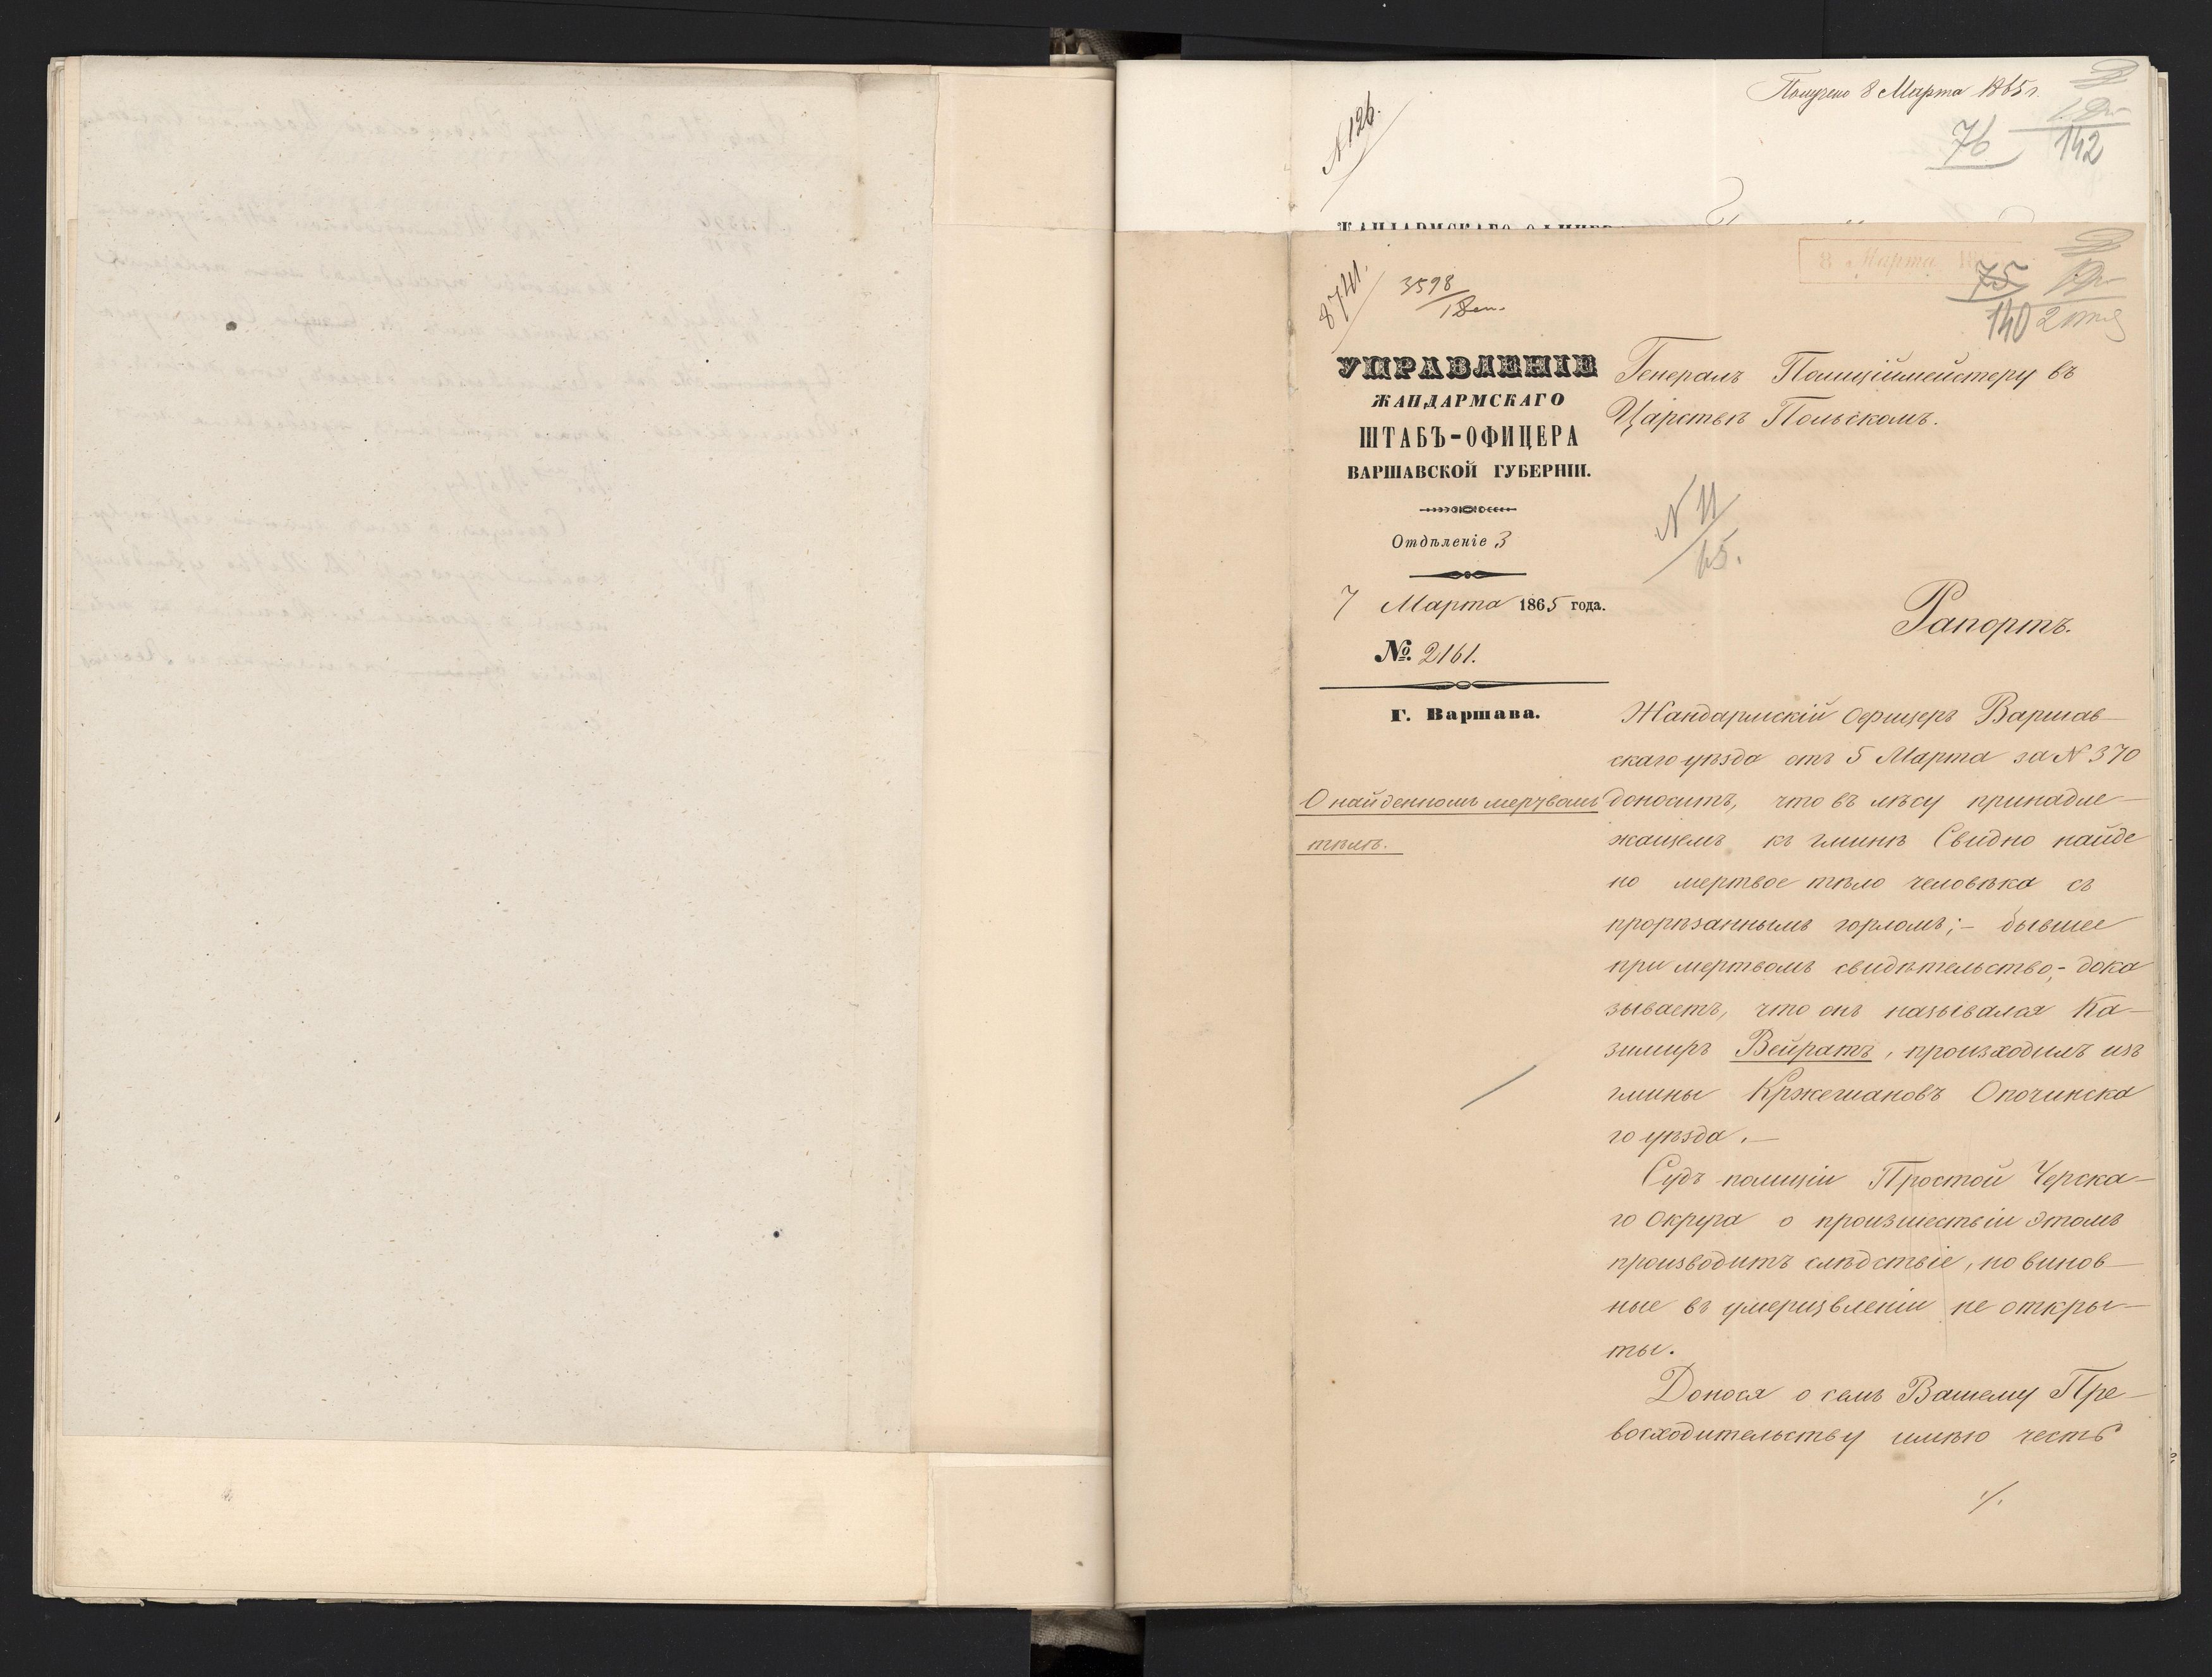 Получено 8 Марта 1865 г.
N 126.
76
142
8 Марта
8741.
3598
75
140
УПРАВЛЕНІЕ
ЖАНДАРМСКАГО
ШТАБЪ-ОФИЦЕРА
ВАРШАВСКОЙ ГУБЕРНІИ.
Отдѣленіе 3
7 Марта 1865 года.
№. 2161.
Г. Варшава.
О найденномъ мертвомъ
тѣлѣ.
Генералъ Полиціймейстеру въ
Царствѣ Польскомъ.
N 11
65.
Рапортъ.
Жандармскій Офицеръ Варшав-
скаго уѣзда отъ 5 Марта за N 370
доноситъ, что въ лѣсу принадле-
жащемъ къ гминѣ Свидно найде
но мертвое тѣло человѣка съ
прорѣзаннымъ горломъ;- бывшее
при мертвомъ свидѣтельство,- дока
зываетъ, что онъ назывался Ка-
зимиръ Вейратъ, произходилъ изъ
гмины Кржечановъ Опочинска
го уѣзда.-
Судъ полиціи Простой Черска-
го Округа о произшествіи этомъ
производитъ слѣдствіе, но винов-
ные въ умерщвленіи не откры-
ты.
Донося о семъ Вашему Пре-
восходительству имѣю честь
./.